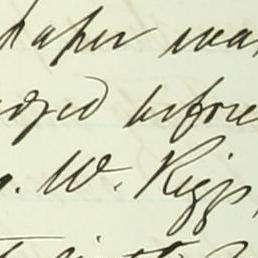 paper was
dged before
. W. Riggs,